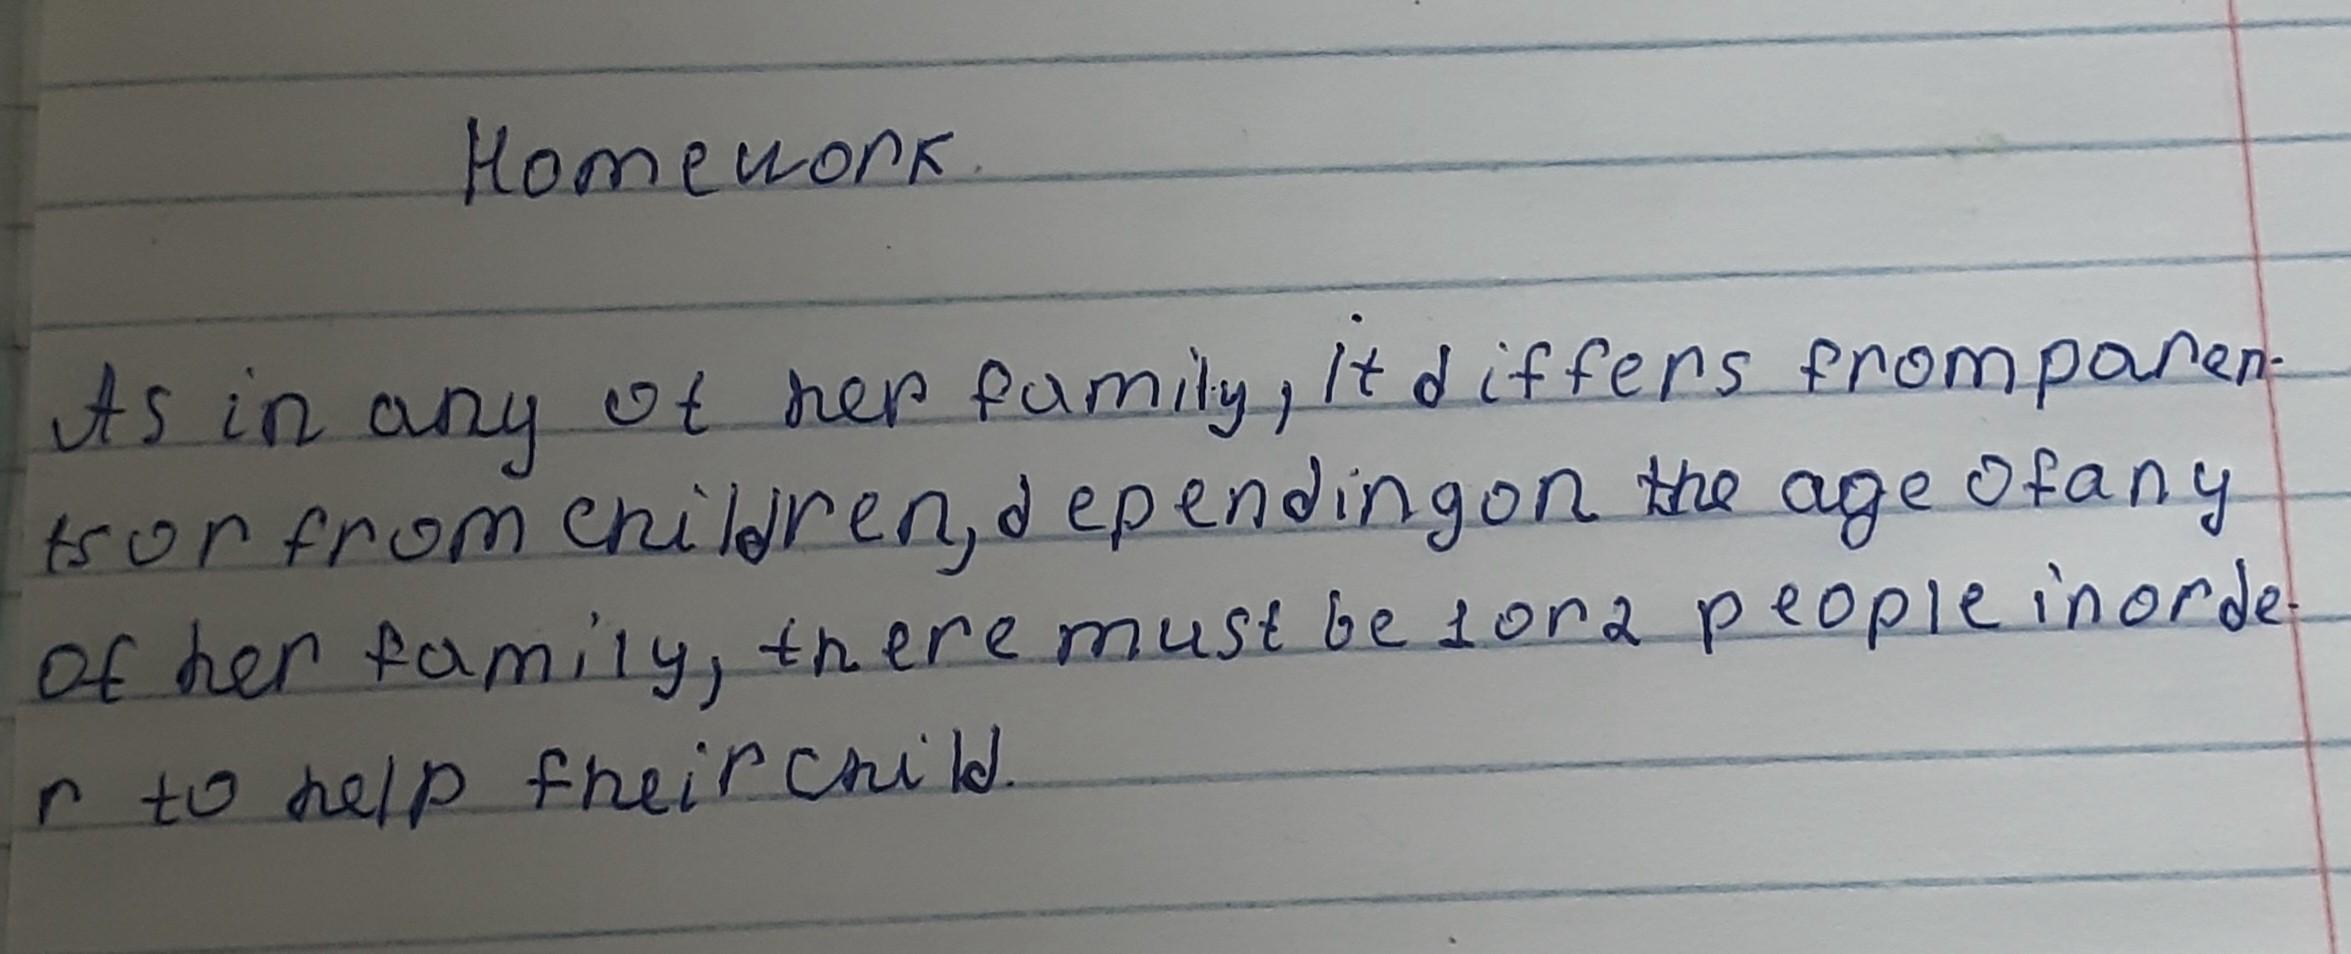 Homework.
As in any of her family, it differs from paren-
ts or from children, depending on the age of any
of her family, there must be 1 or 2 people in orde-
r to help their child.